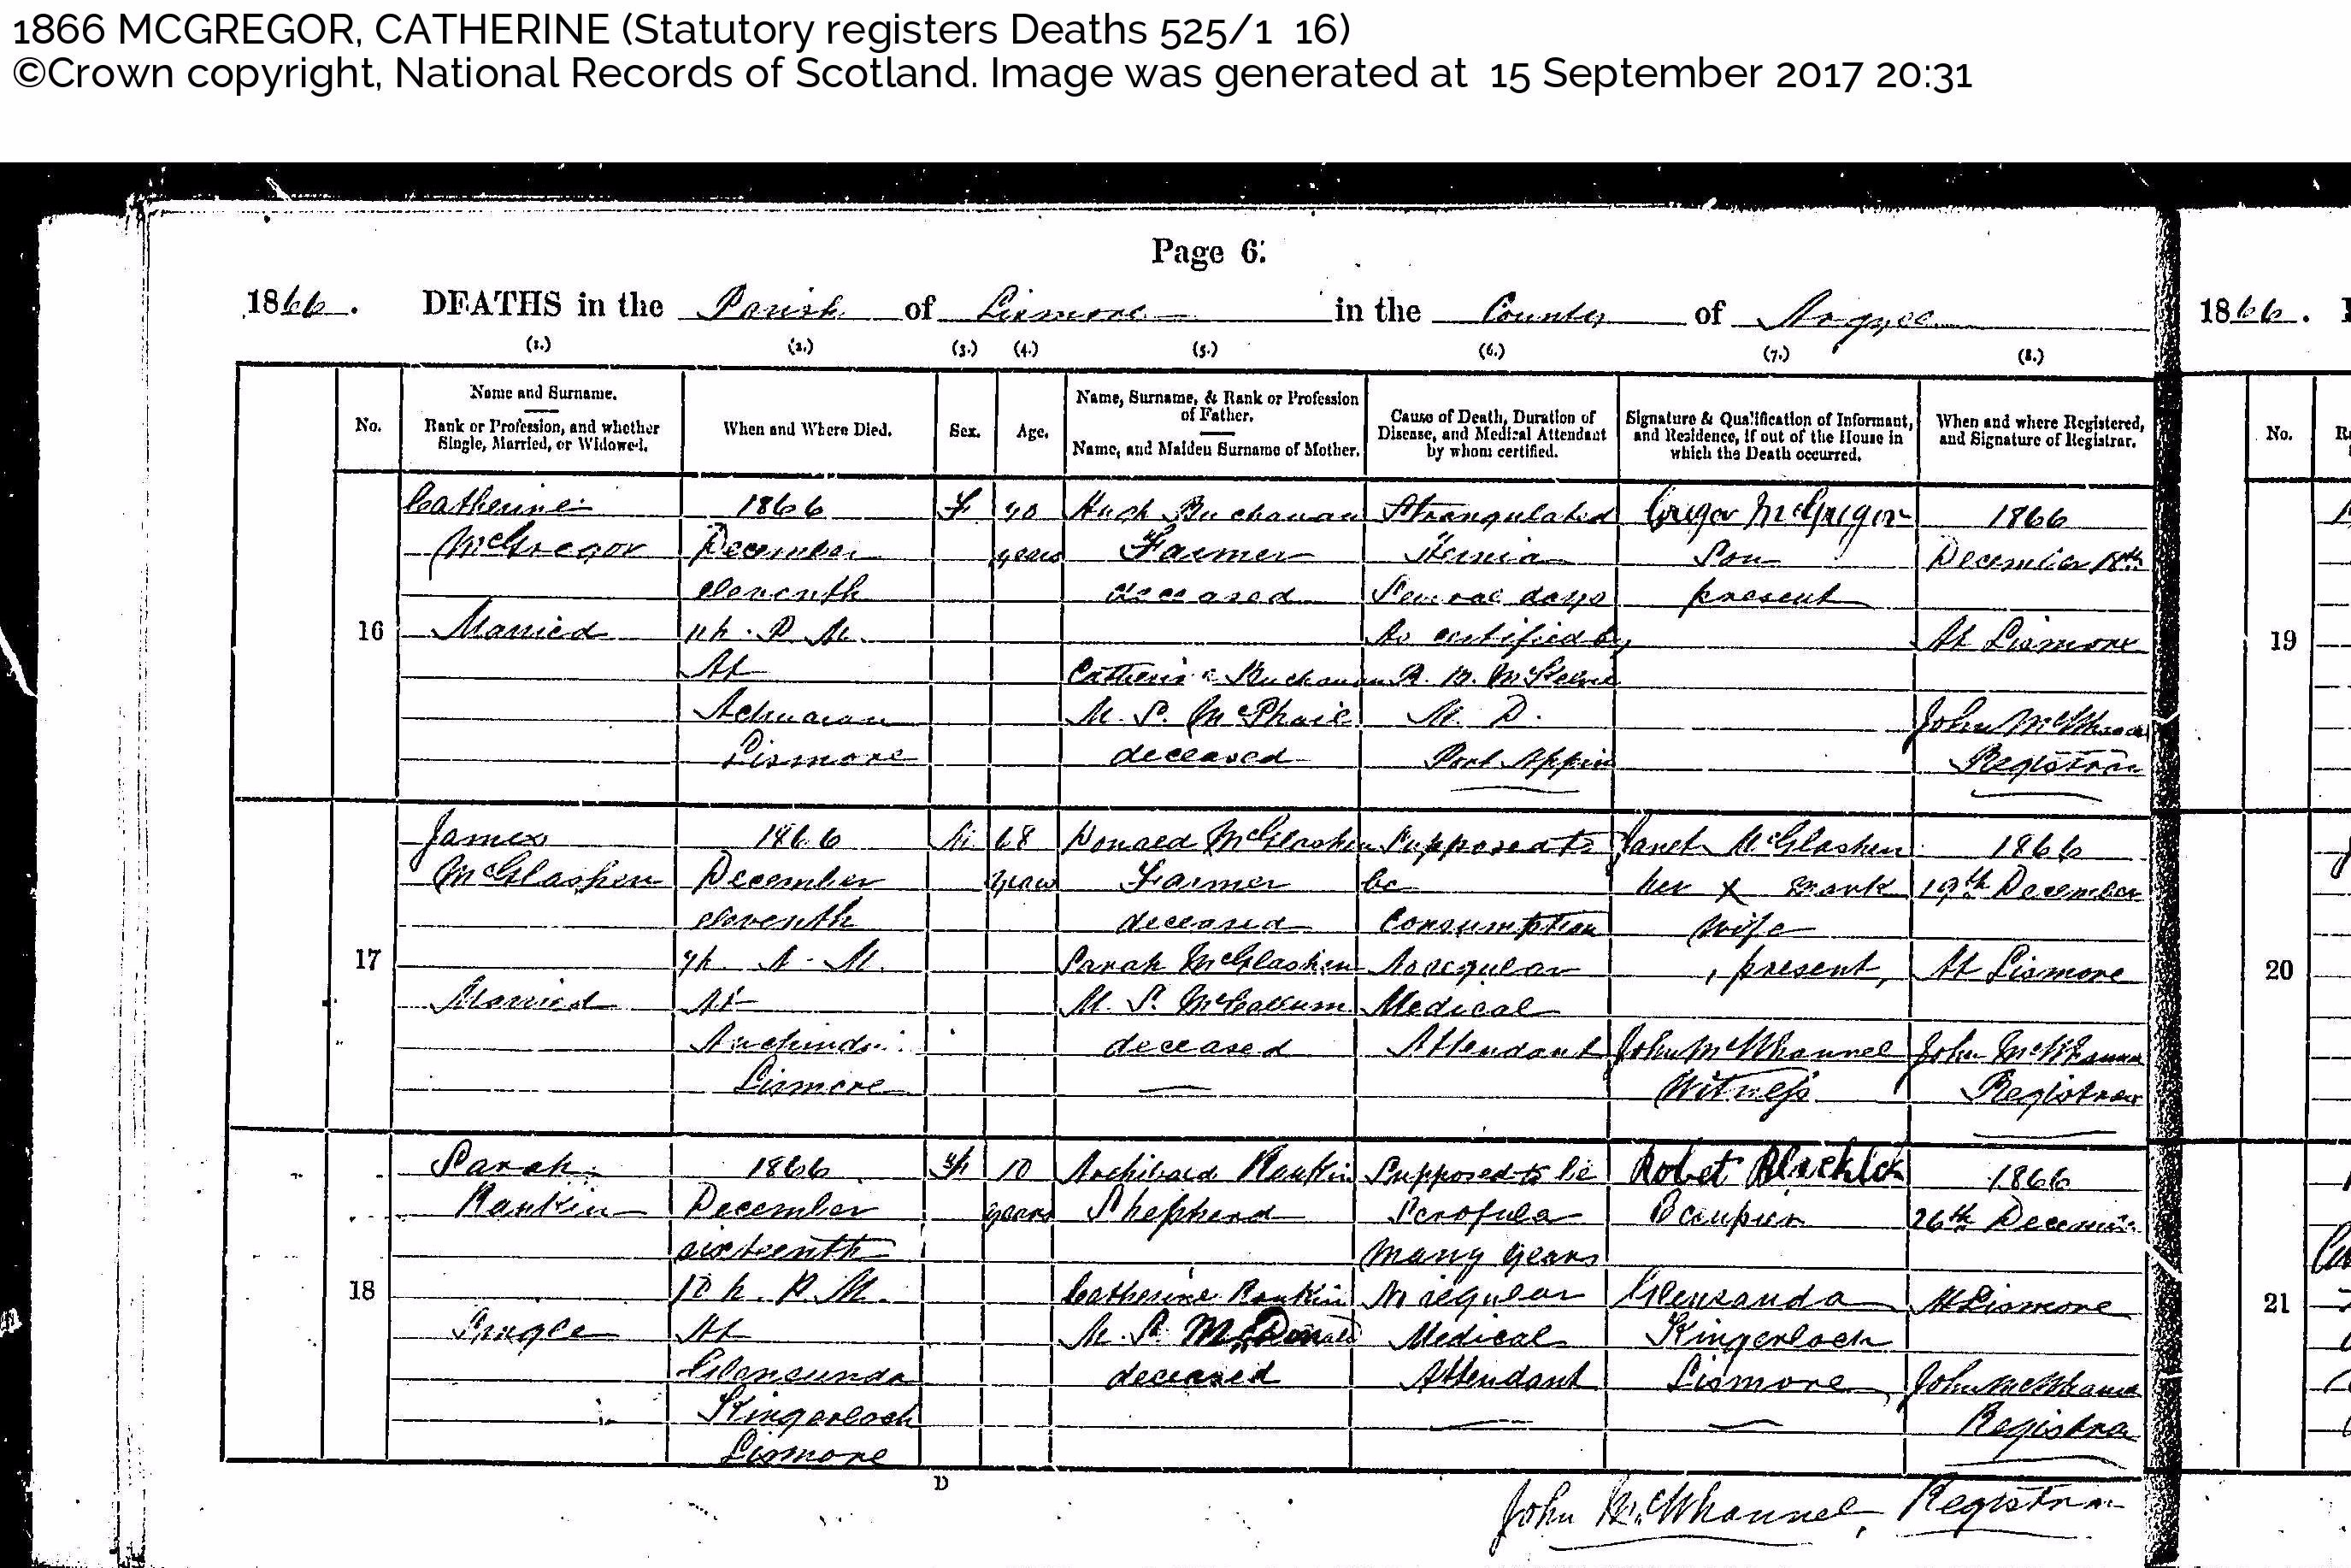 1866 MCGREGOR, CATHERINE (Statutory registers Deaths 525/1 16)
©Crown copyright, National Records of Scotland. Image was generated at 15 September 2017 20:31
Page 6.
1866. DEATHS in the Parish of Lismore in the County of Argyll
1866.
(1.) (2.) (3.) (4.) (5.) (6.) (7.) (8.)
No.
Name and Surname.
Rank or Profession, and whether
Single, Married, or Widowed.
When and Where Died.
Sex.
Age.
Name, Surname, & Rank or Profession
of Father.
Name, and Maiden Surname of Mother.
Cause of Death, Duration of
Disease, and Medical Attendant
by whom certified.
Signature & Qualification of Informant,
and Residence, if out of the House in
which the Death occurred.
When and where Registered,
and Signature of Registrar.
No.
16
Catherine
McGregor
Married
1866
December
eleventh
11h. P M.
At
Lismore
F
years
Hugh Buchanan
Farmer
deceased
Catherine Buchanan
M. S. McPhail
deceased
Strangulated
Hernia
Several days
As certified by
M. D.
Port Appin
Gregor McGregor
Son
present
1866
December 18th
At Lismore
John McWhannel
Registrar
19
17
James
McGlashen
Married
1866
December
eleventh
7h. A. M.
At
Lismore
M
68
years
Donald McGlashen
Farmer
deceased
Sarah McGlashen
M. S. McCallum
deceased
Supposed to
be
Consumption
No regular
Medical
Attendant
Janet McGlashen
her x mark
wife
present
John McWhannel
Witness
1866
19th December
At Lismore
John McWhannel
Registrar
20
18
Sarah
Rankin
Single
1866
December
sixteenth
10 h. P. M.
At
Glensanda
Kingerloch
Lismore
F
10
years
Archibald Rankin
Shepherd
Catherine Rankin
M. S. McDonald
deceased
Supposed to be
Scrofula
many years
No regular
Medical
Attendant
Robet Blacklock
Occupier
Glensanda
Kingerloch
Lismore
1866
26th December
At Lismore
John McWhannel
Registrar
21
D
John McWhannel, Registrar